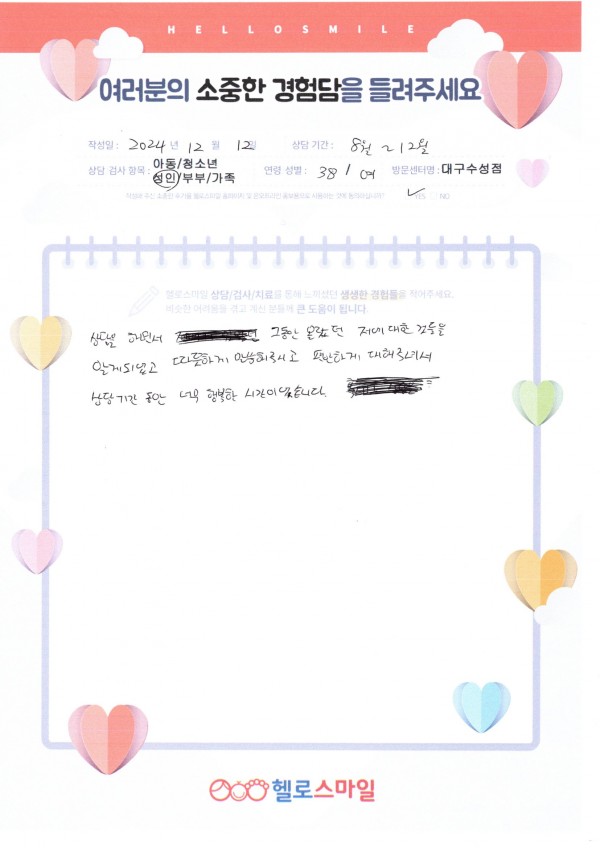 HELLOSMILE
여러분의 소중한 경험담을 들려주세요
작성일 : 2024 년 12 월 12일 상담 기간 : 8월 ~ 12월
상담 검사 항목 : 아동/청소년
성인/부부/가족 연령 성별 : 38 / 여 방문센터명 : 대구수성점
작성해 주신 소중한 후기를 헬로스마일 홈페이지 및 온오프라인 홍보물 사용하는 것에 동의하십니까? ✓ YES NO
헬로스마일 상담/검사/치료를 통해 느끼셨던 생생한 경험들을 적어주세요.
비슷한 어려움을 겪고 계신 분들께 큰 도움이 됩니다.
상담을 해면서 그동안 몰랐던 저에 대한 것들을
알게되었고 따뜻하게 말씀해주시고 편안하게 대해주셔서
상담기간 동안 너무 행복한 시간이었습니다.
헬로스마일